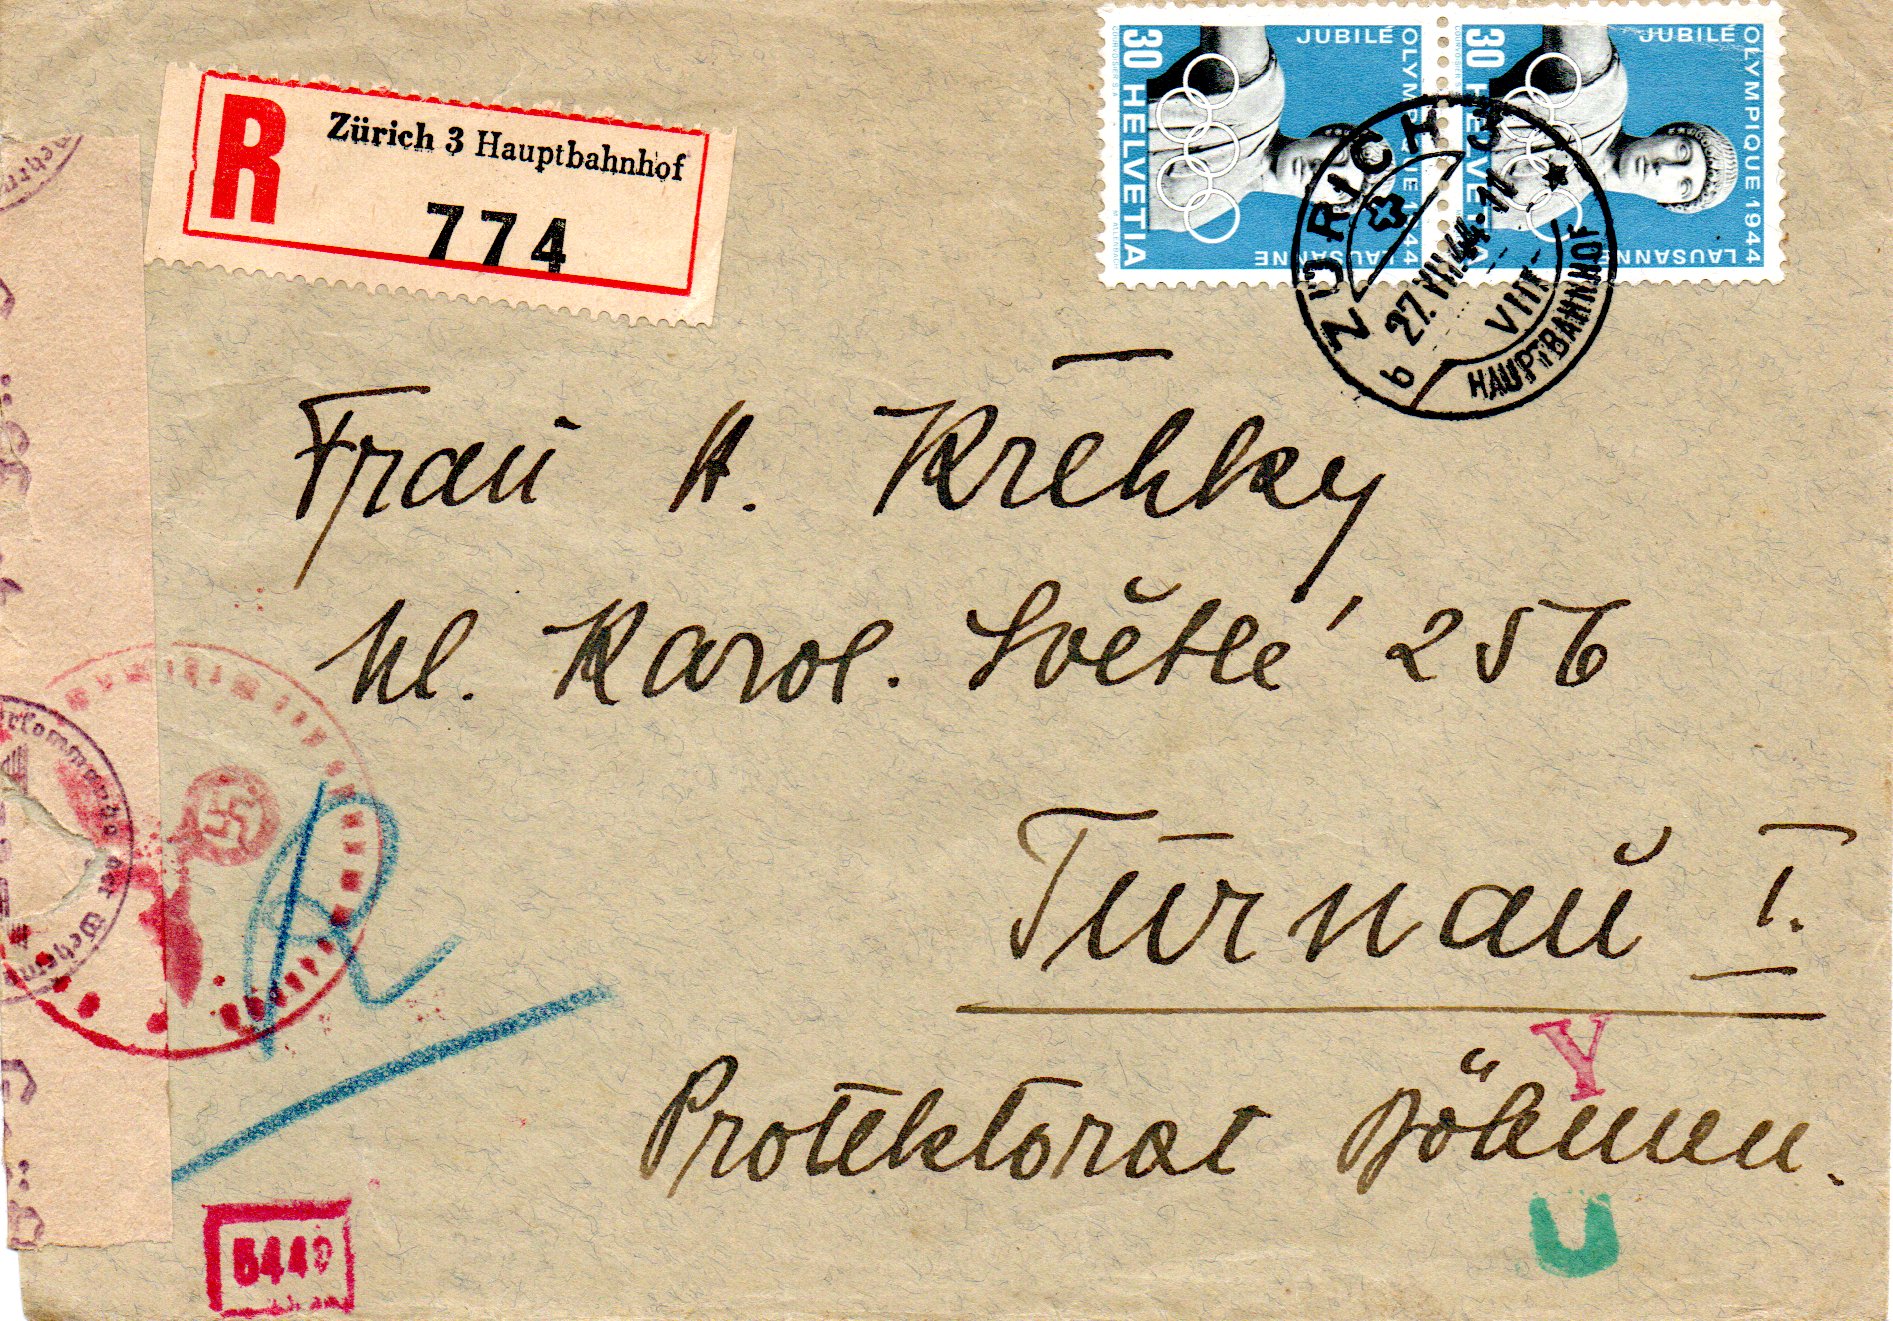 R
Zürich 3 Hauptbahnhof
774
30 HELVETIA
JUBILÉ OLYMPIQUE 1944 LAUSANNE
30 HELVETIA
JUBILÉ OLYMPIQUE 1944 LAUSANNE
ZÜRICH 3
27.VIII.44-11
VIII
b
HAUPTBAHNHOF
Frau H. Křehky
Ul. Karol. Světlé 256
Turnau I.
Protektorat Böhmen.
der Wehrm
R
Y
U